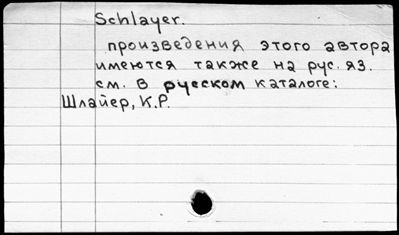 Schlayer.
произведения этого автора
имеются также на рус. яз.
см. в русском каталоге:
Шлайер, К.Р.